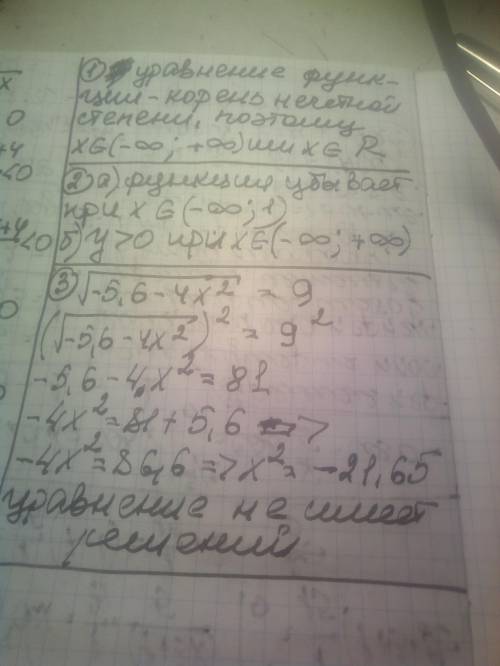 x
0
+4
<0
+4
<0
0
① уравнение функ-
ции - корень нечетной
степени, поэтому
x∈(-∞; +∞) или x∈ R
② а) функция убывает
при x ∈ (-∞; 1)
б) y>0 при x∈(-∞; +∞)
③ √(-5,6-4x²) = 9
(√(-5,6-4x²))² = 9²
-5,6-4x² = 81
-4x² = 81+5,6 =>
-4x² = 86,6 => x² = -21,65
уравнение не имеет
решений